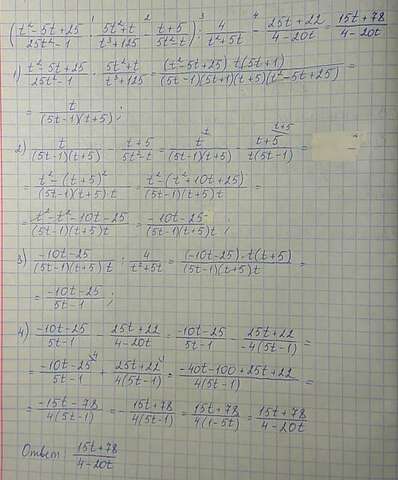 (t²-5t+25/25t²-1 · 5t²+t/t³+125 - t+5/5t²-t) : 4/t²+5t - 25t+22/4-20t = 15t+78/4-20t
1) t²-5t+25/25t²-1 · 5t²+t/t³+125 = (t²-5t+25) t(5t+1)/(5t-1)(5t+1)(t+5)(t²-5t+25) =
= t/(5t-1)(t+5) ;
2) t/(5t-1)(t+5) - t+5/5t²-t = t/(5t-1)(t+5) - t+5/t(5t-1) =
= t²-(t+5)²/(5t-1)(t+5)·t = t²-(t²+10t+25)/(5t-1)(t+5)·t =
= t²-t²-10t-25/(5t-1)(t+5)t = -10t-25/(5t-1)(t+5)t ;
3) -10t-25/(5t-1)(t+5)·t : 4/t²+5t = (-10t-25)·t(t+5)/(5t-1)(t+5)t =
= -10t-25/5t-1 ;
4) -10t-25/5t-1 - 25t+22/4-20t = -10t-25/5t-1 - 25t+22/-4(5t-1) =
= -10t-25/5t-1 + 25t+22/4(5t-1) = -40t-100+25t+22/4(5t-1) =
= -15t-78/4(5t-1) = - 15t+78/4(5t-1) = 15t+78/4(1-5t) = 15t+78/4-20t
Ответ: 15t+78/4-20t